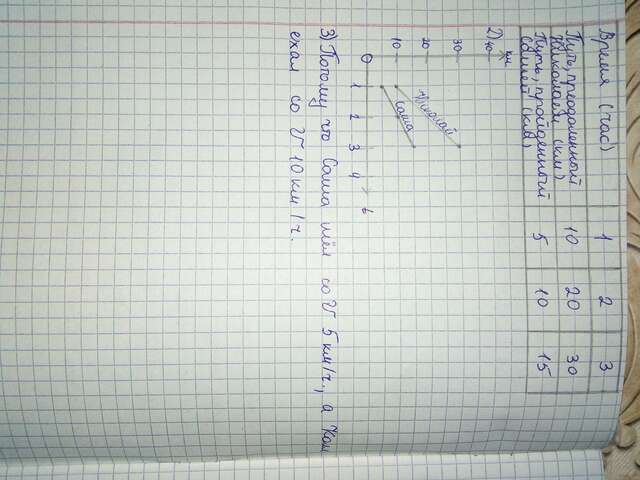 Время (час) 1 2 3
Путь, преодоленный
Николаем (км) 10 20 30
Путь, пройденный
Сашей (км) 5 10 15
2) км
40
30
20
10
0 1 2 3 4 t
Николай
Саша
3) Потому что Саша шёл со V 5 км/ч., а Кол
ехал со V 10 км/ч.